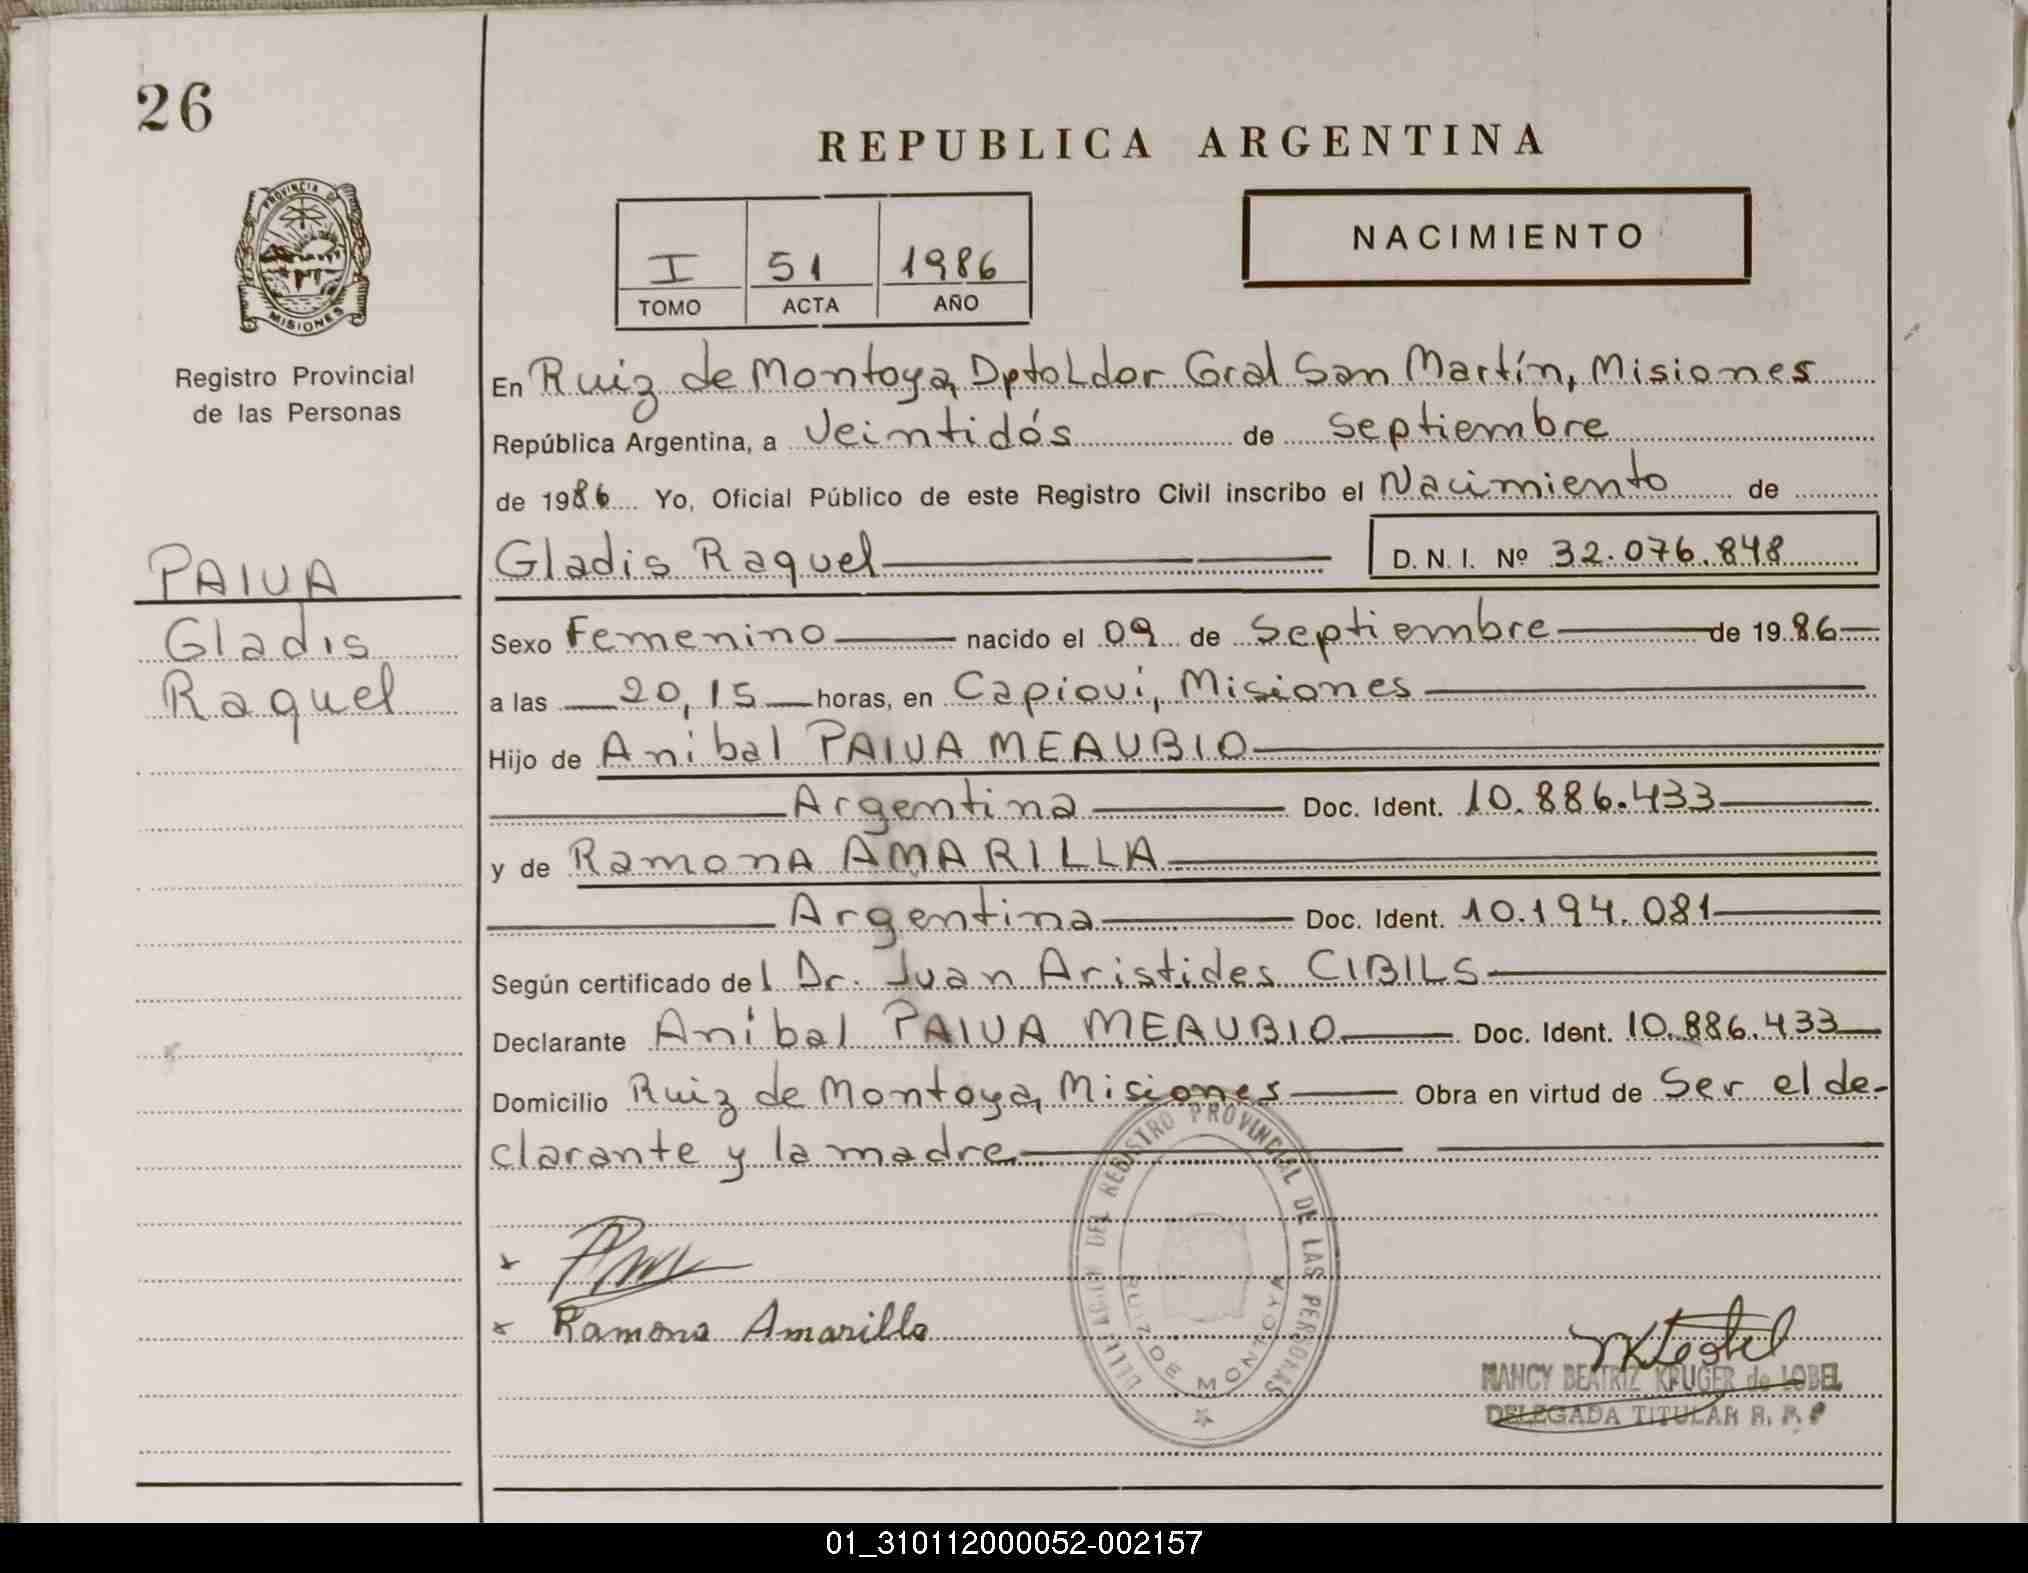 26
REPUBLICA ARGENTINA
PROVINCIA DE
MISIONES
I 51 1986
TOMO ACTA AÑO
NACIMIENTO
Registro Provincial
de las Personas
PAIVA
Gladis
Raquel
En Ruiz de Montoya, Dpto Ldor Gral San Martín, Misiones
República Argentina, a Veintidós de Septiembre
de 1986 Yo, Oficial Público de este Registro Civil inscribo el Nacimiento de
Gladis Raquel D.N.I. Nº 32.076.848
Sexo Femenino nacido el 09 de Septiembre de 1986
a las 20,15 horas, en Capioví, Misiones
Hijo de Aníbal PAIVA MEAUBIO
Argentina Doc. Ident. 10.886.433
y de Ramona AMARILLA
Argentina Doc. Ident. 10.194.081
Según certificado del Dr. Juan Aristides CIBILS
Declarante Aníbal PAIVA MEAUBIO Doc. Ident. 10.886.433
Domicilio Ruiz de Montoya, Misiones Obra en virtud de Ser el de-
clarante y la madre
DELEGACION DEL REGISTRO PROVINCIAL DE LAS PERSONAS
RUIZ DE MONTOYA
x
x Ramona Amarilla
NANCY BEATRIZ KRUGER de LOBEL
DELEGADA TITULAR R. P. P
01_310112000052-002157